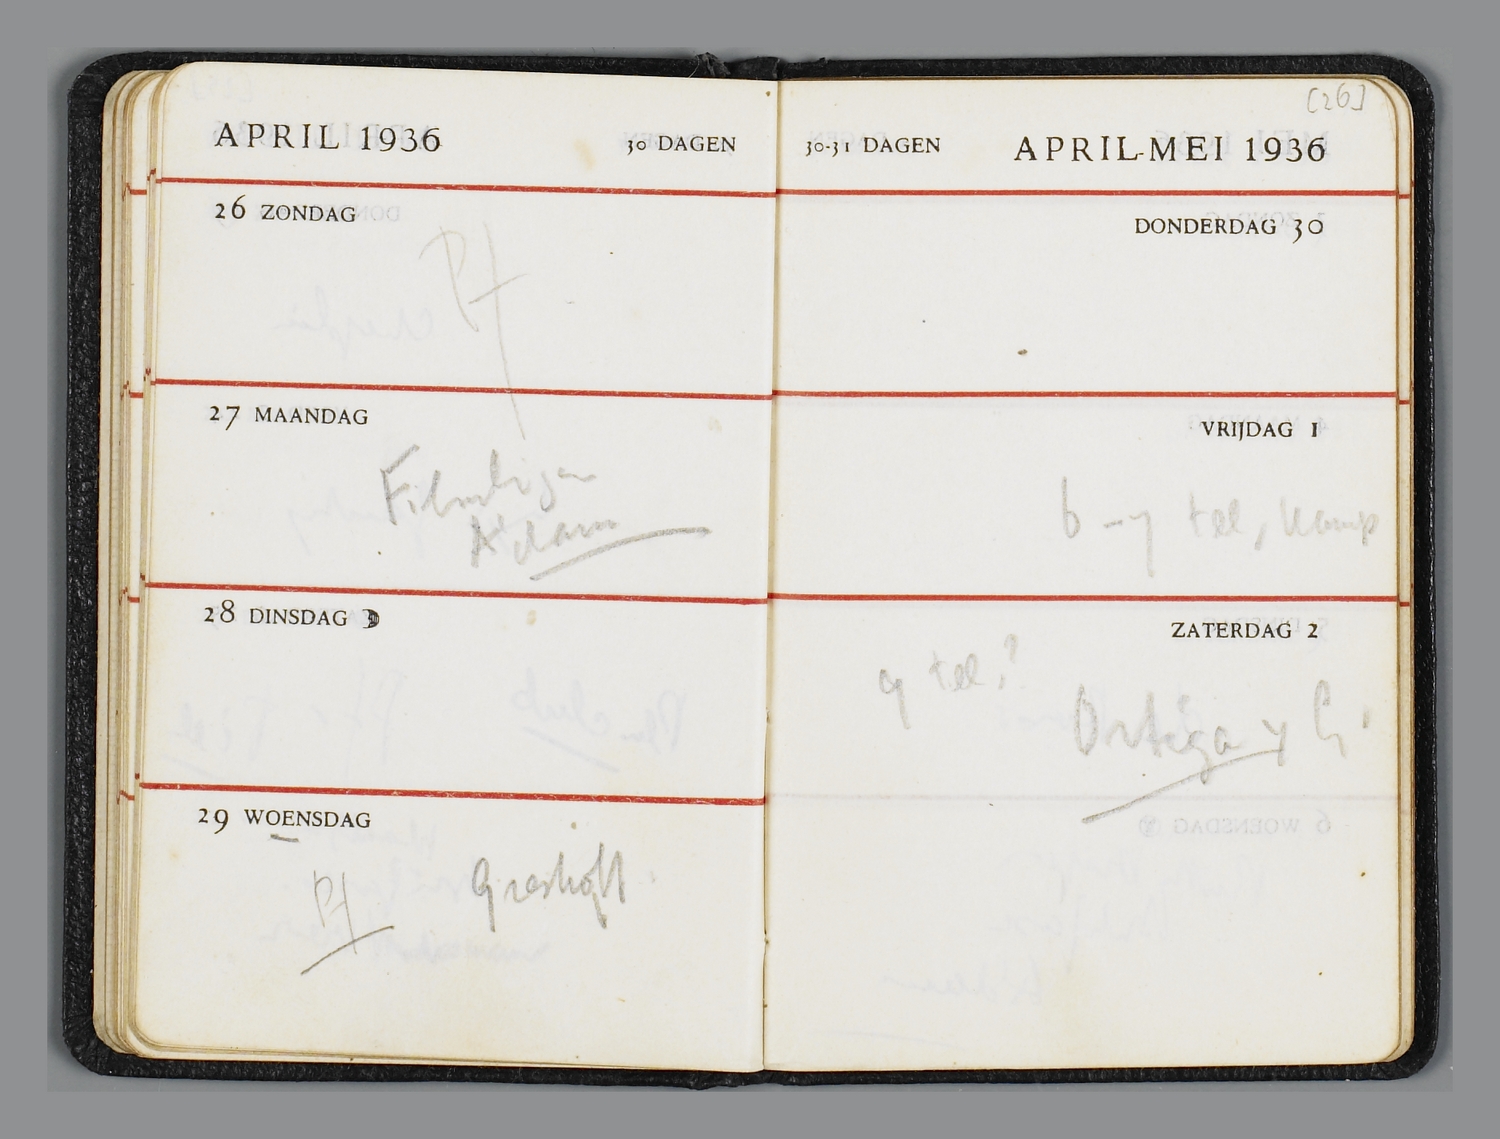 APRIL 1936 30 DAGEN
26 ZONDAG
Pf
27 MAANDAG
Filmliga
A'dam
28 DINSDAG
29 WOENSDAG
Pf Greshoff
[26]
30-31 DAGEN APRIL-MEI 1936
DONDERDAG 30
VRIJDAG 1
6-7 tel, kamp
ZATERDAG 2
9 tel?
Ortega y G.